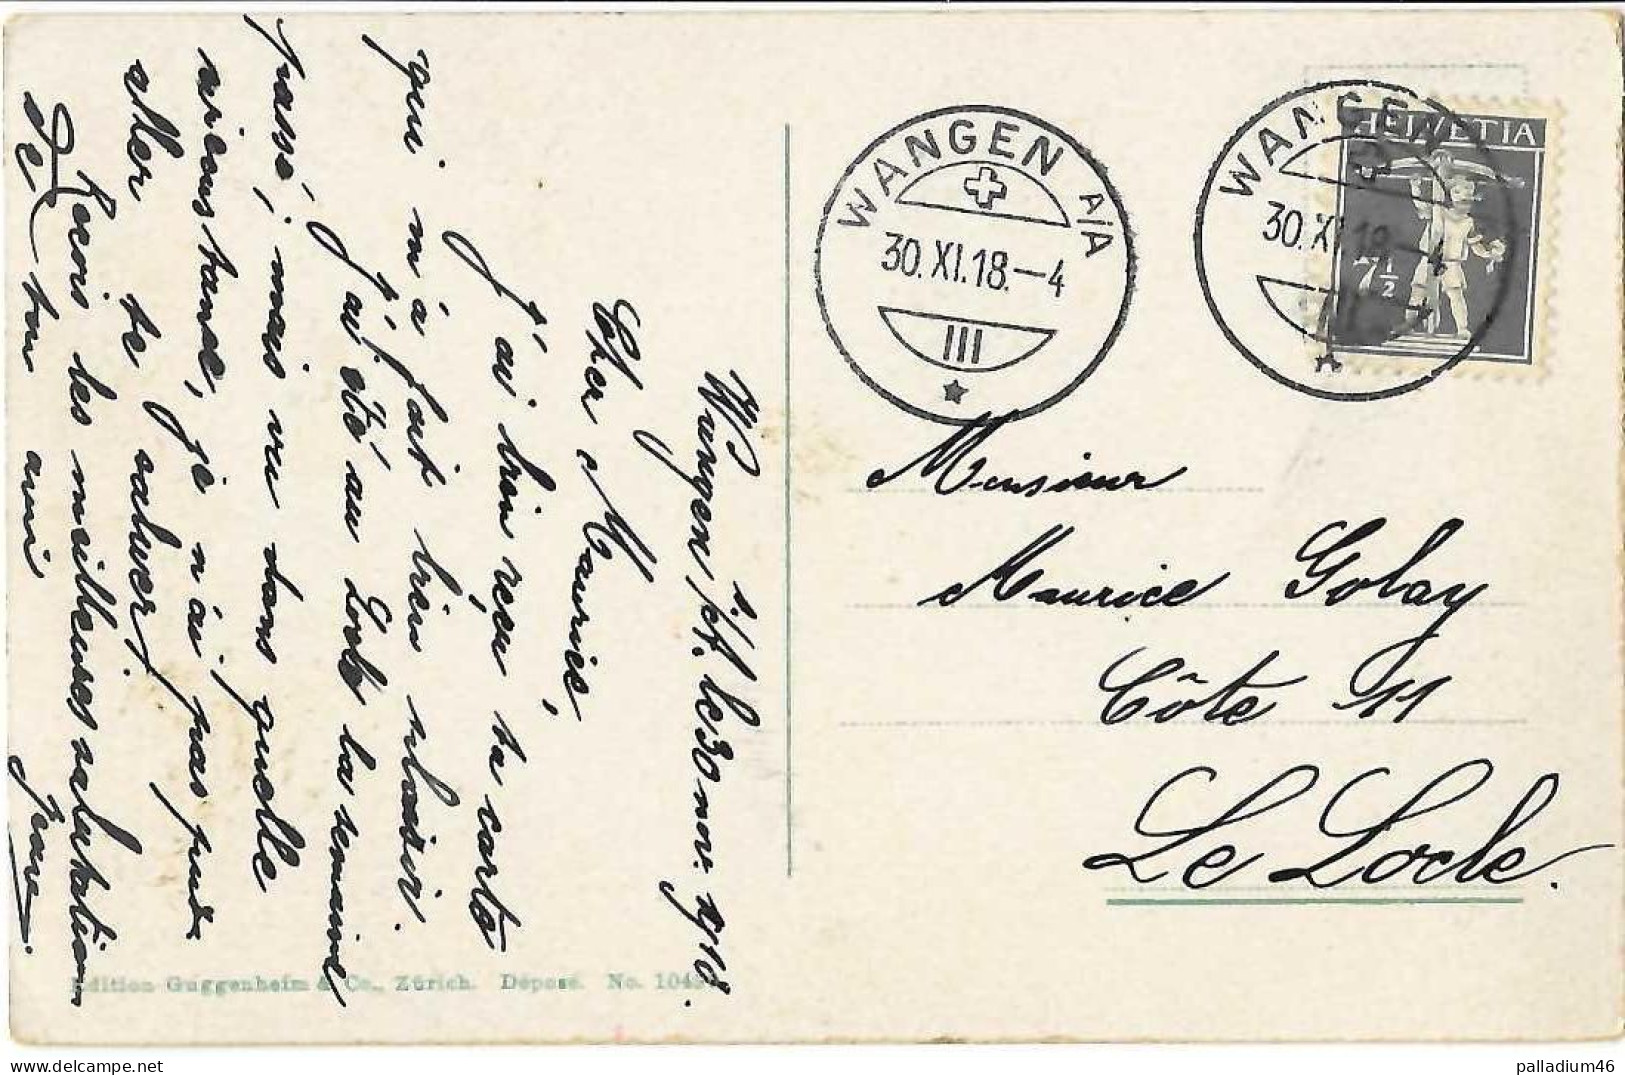 WANGEN A/A
30.XI.18.-4
III
WANGEN
30.XI.18.-4
HELVETIA
7 1/2
Monsieur
Maurice Golay
Côte 11
Le Locle.
Wangen s./A. le 30 nov. 1918.
Cher Maurice,
J'ai bien reçu ta carte
qui m'a fait bien plaisir.
J'ai été au Locle la semaine
passé, mais vu dans quelle
circonstance, je n'ai pas pu
aller te saluer.
Recois les meilleures salutation
de ton ami
Edition Guggenheim & Co., Zürich. Déposé. No.
palladium46